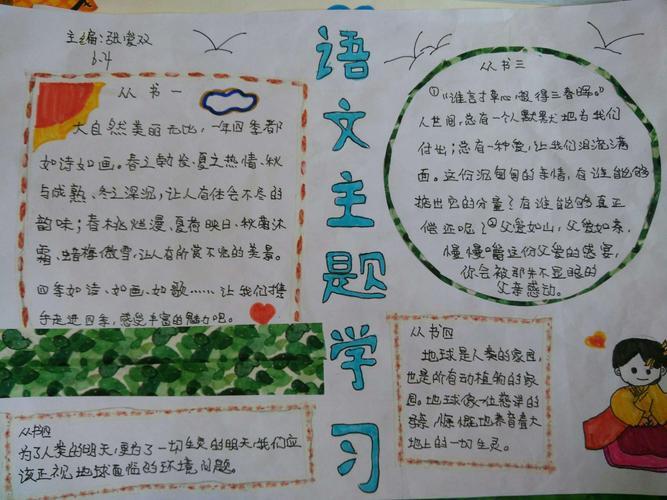 主编:张雯双
6.4
从书一
大自然美丽无比，一年四季都
如诗如画。春之勃发、夏之热情、秋
与成熟、冬之深沉，让人有体会不尽的
韵味；春桃烂漫、夏荷映日、秋菊沐
霜、蜡梅傲雪，让人有所赏不完的美景。
四季如诗、如画、如歌……让我们携
手走进四季，感受丰富的魅力吧。
语文主题学习
从书三
①"谁言寸草心，报得三春晖。"
人世间，总有一个人默默地为我们
付出；总有一种爱，让我们泪流满
面。这份沉甸甸的亲情，有谁能够
掂出它的分量？有谁能够真正
偿还呢？②父爱如山，父爱如海，
慢慢嚼这份父爱的盛宴，
你会被那朱不显眼的
父亲感动。
从书四
为了人类的明天，更为了一切生灵的明天，我们应
该正视地球面临的环境问题。
从书四
地球是人类的家园，
也是所有动植物的家
园。地球像一位慈祥的
母亲，慷慨地养育着大
地上的一切生灵。